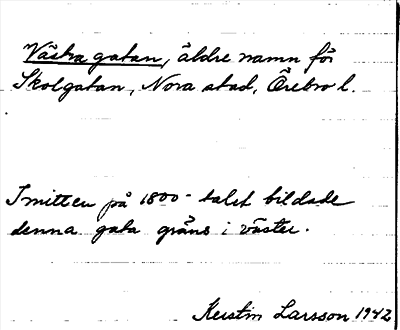 Västra gatan, äldre namn för
Skolgatan, Nora stad, Örebro l.
I mitten på 1800-talet bildade
denna gata gräns i väster.
Kerstin Larsson 1942